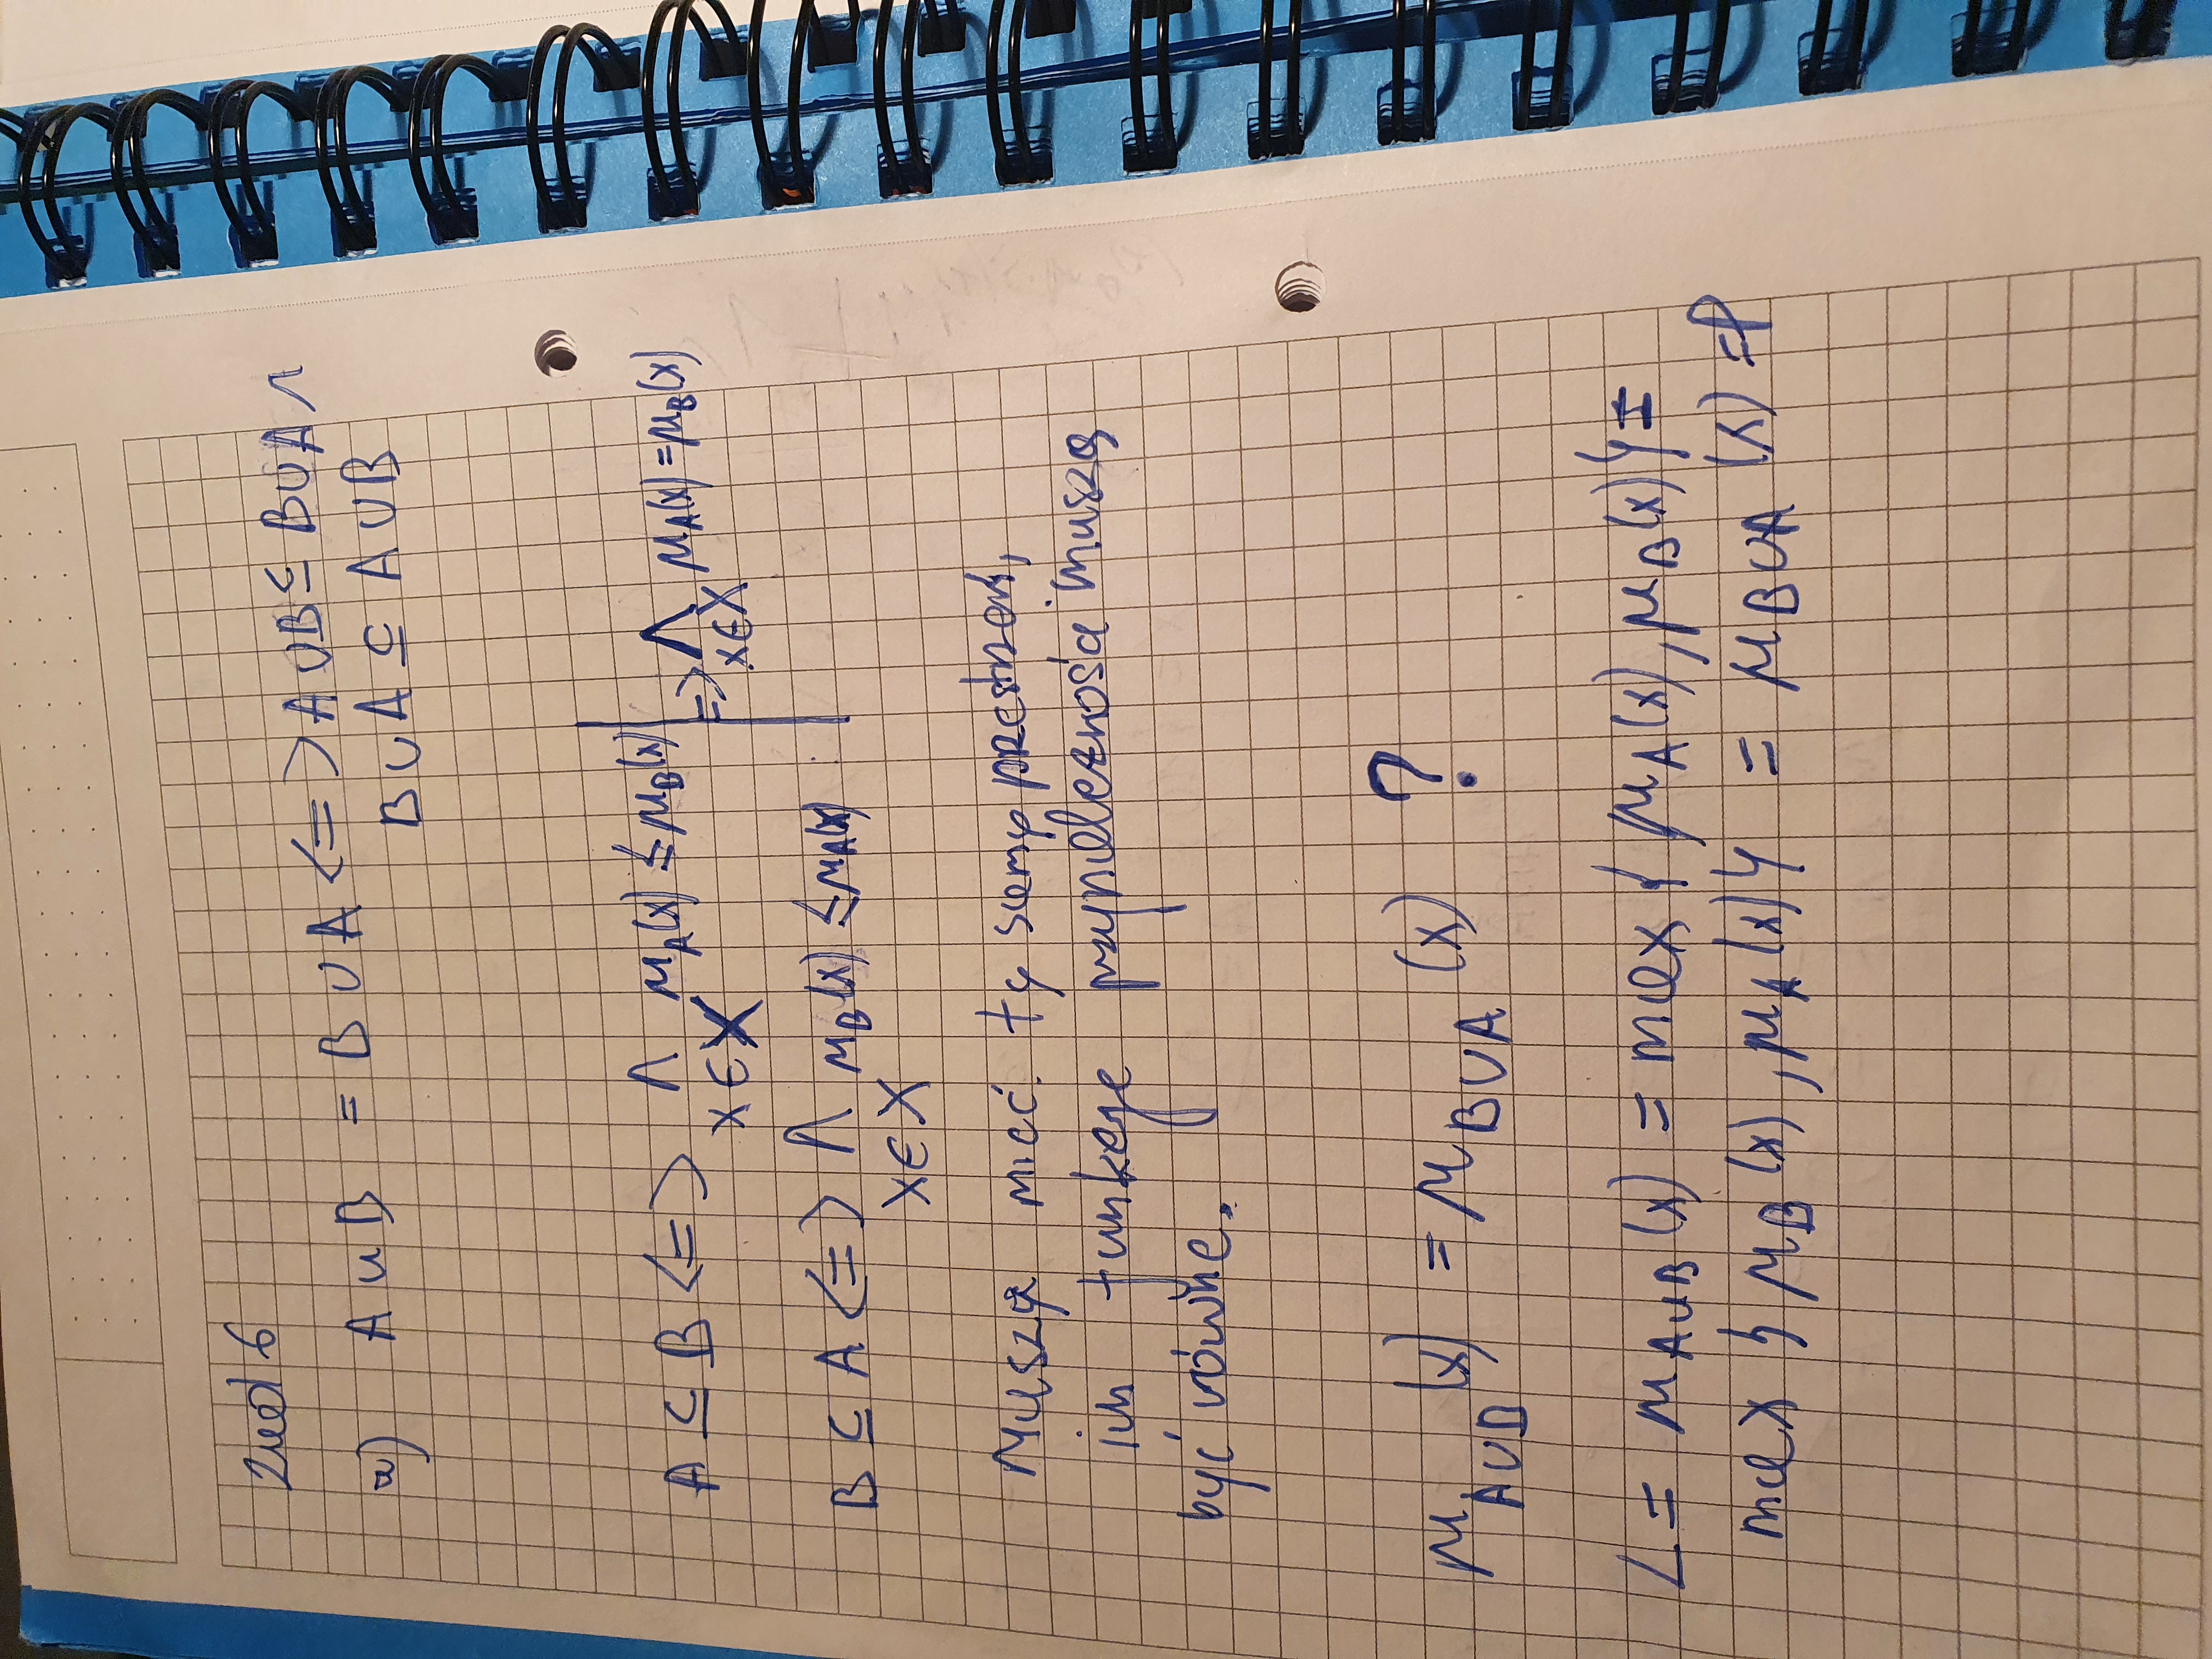 Zad 6
a) A ∪ B = B ∪ A <=> A ∪ B ⊆ B ∪ A ∧
B ∪ A ⊆ A ∪ B
A ⊆ B <=> ∧ μA(x) ≤ μB(x) | => ∧ μA(x) = μB(x)
x∈X x∈X
B ⊆ A <=> ∧ μB(x) ≤ μA(x)
x∈X
Muszą mieć tę samą przestrzeń,
ich funkcje przynależności muszą
być równe.
μA∪B(x) = μB∪A(x) ?
L = μA∪B(x) = max { μA(x), μB(x) } =
max { μB(x), μA(x) } = μB∪A(x) = P